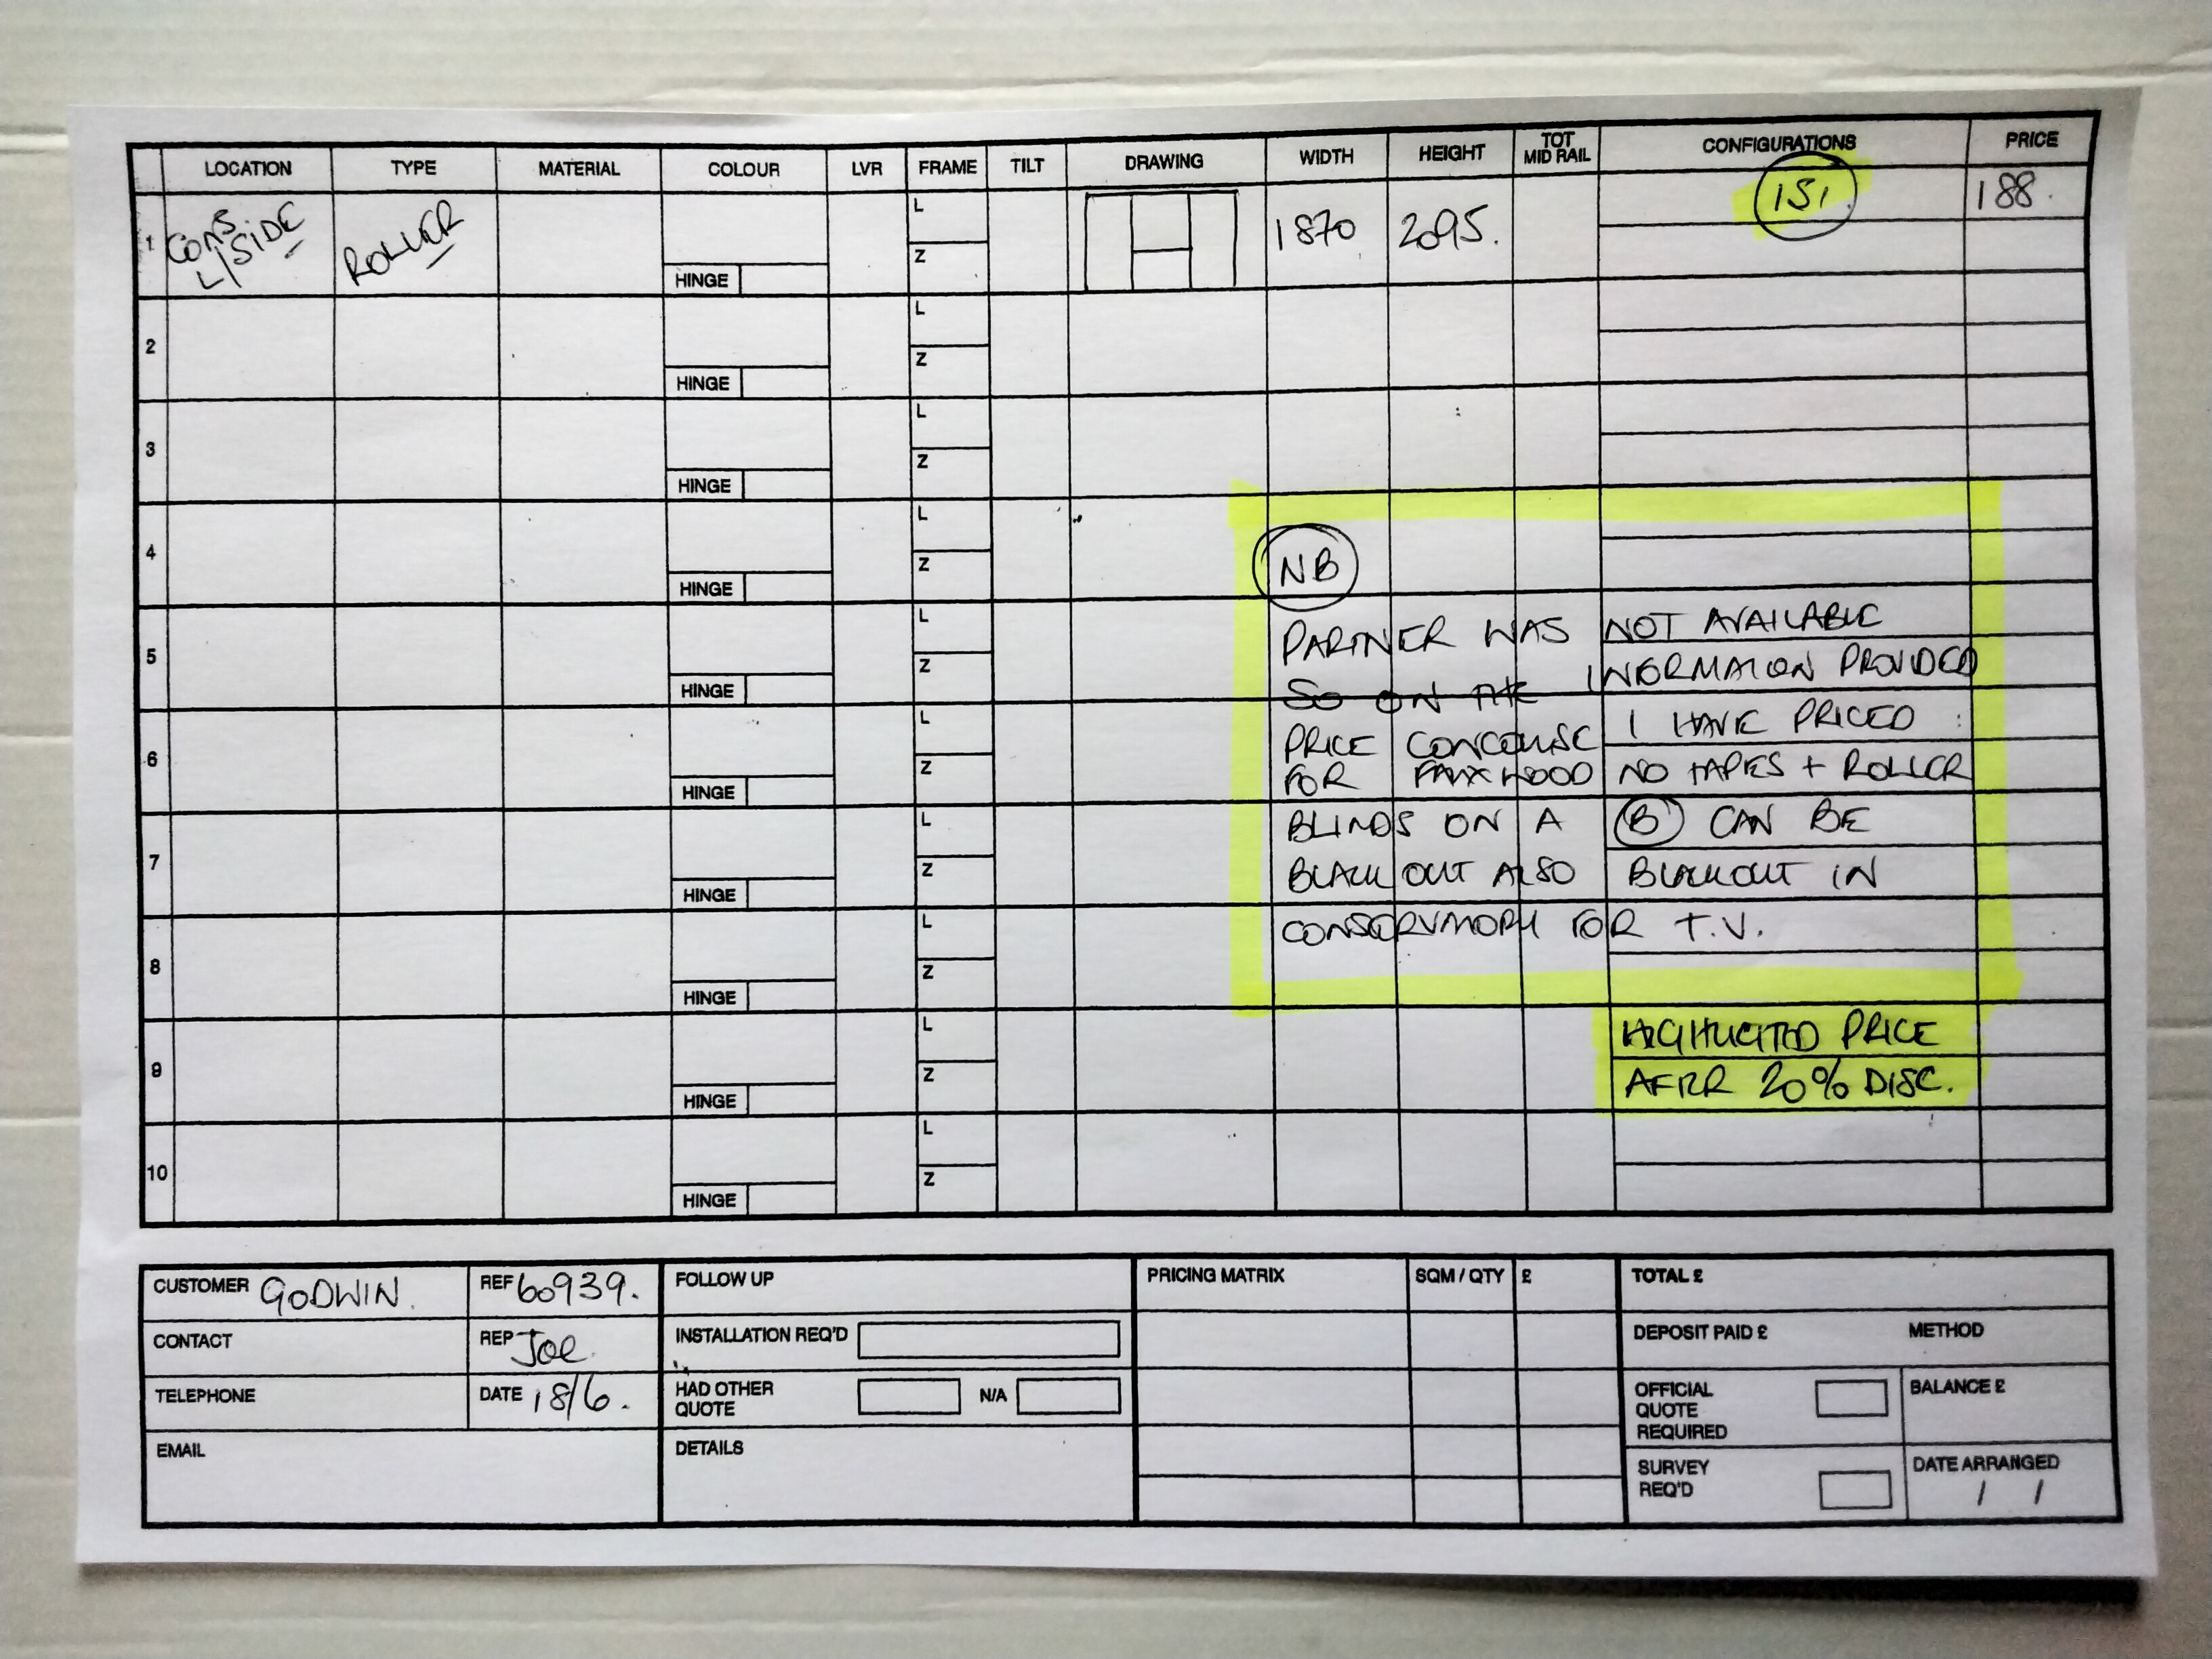 LOCATION TYPE MATERIAL COLOUR LVR FRAME TILT DRAWING WIDTH HEIGHT TOT MID RAIL CONFIGURATIONS PRICE
1 CONS L/SIDE ROLLER HINGE L Z 1870 2095. 151. 188.
2 HINGE L Z
3 HINGE L Z
4 HINGE L Z
NB
5 HINGE L Z
PARTNER WAS NOT AVAILABLE
SO ON THE INFORMATION PROVIDED
6 HINGE L Z
PRICE CONCOURSE I HAVE PRICED :
FOR FAUXWOOD NO TAPES + ROLLER
7 HINGE L Z
BLINDS ON A (B) CAN BE
BLACKOUT ALSO BLACKOUT IN
8 HINGE L Z
CONSERVATORY FOR T.V.
9 HINGE L Z
HIGHLIGHTED PRICE
AFTER 20% DISC.
10 HINGE L Z
CUSTOMER GODWIN. REF 60939. FOLLOW UP PRICING MATRIX SQM / QTY £ TOTAL £
CONTACT REP Joe. INSTALLATION REQ'D DEPOSIT PAID £ METHOD
TELEPHONE DATE 18/6. HAD OTHER QUOTE N/A OFFICIAL QUOTE REQUIRED BALANCE £
EMAIL DETAILS SURVEY REQ'D DATE ARRANGED / /